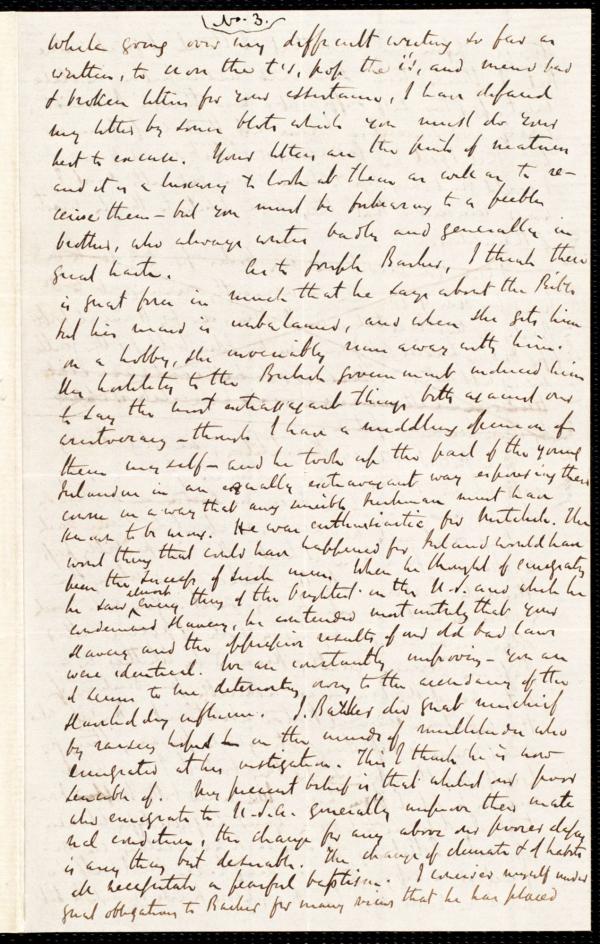 No. 3.
While going over my difficult writing so far as
written, to cross the t's, pop the i's, and mend bad
& broken letters for your assistance, I have defaced
my letter by some blots which you must do your
best to excuse. Your letters are the pink of neatness
and it is a luxury to look at them as well as to re-
ceive them - but you must be forbearing to a feebler
brother, who always writes badly and generally in
great haste. As to Joseph Barker, I think there
is great force in much that he says about the Bible
but his mind is unbalanced, and when she gets him
on a hobby, she invariably runs away with him.
His hostility to the British government induced him
to say the most extravagant things both against our
aristocracy - though I have a middling opinion of
them myself - and he took up the part of the young
Irelanders in an equally extravagant way espousing their
cause in a way that any sensible Irishman must have
known to be wrong. He was enthusiastic for Mitchel. The
worst thing that could have happened for Ireland would have
been the success of such men. When he thought of emigrating
he saw almost every thing of the brightest in the U.S. and while he
condemned slavery, he contended most untruly that your
slavery and the oppressive results of our old bad laws
were identical. We are constantly improving - you are
it seems to me deteriorating owing to the ascendancy of the
slaveholding influence. J. Barker did great mischief
by raising hopes in the minds of multitudes who
emigrated at his instigation. This I think he is now
sensible of. My present belief is that whilst our poor
who emigrate to U.S.A. generally improve their mate
rial condition, the change for any above our poorer class
is any thing but desirable. The change of climate & of habits
all necessitate a fearful baptism. I consider myself under
great obligations to Barker for many views that he has placed